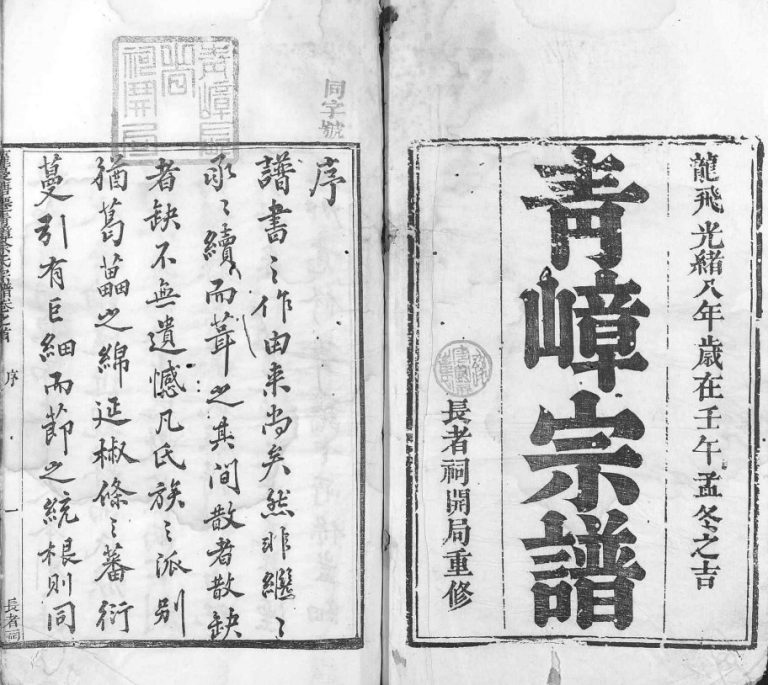 龍飛光緒八年歲在壬午孟冬之吉
青嶂宗譜
長者祠開局重修
同字號
序
譜書之作由来尚矣然非繼〻
承〻續而葺之其間散者散缺
者缺不無遺憾凡氏族之派别
猶葛藟之綿延椒條之蕃衍
蔓引有巨細而節之統根則同
宗譜卷之首
序
一
長者祠